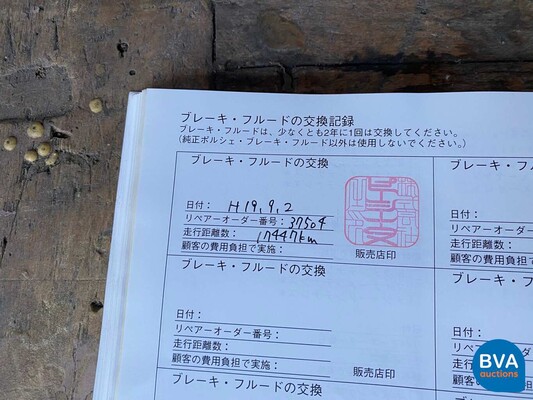 ブレーキ・フルードの交換記録
ブレーキ・フルードは、少なくとも2年に1回は交換してください。
(純正ポルシェ・ブレーキ・フルード以外は使用しないでください。)
ブレーキ・フルードの交換
日付: H19.9.2
リペアーオーダー番号: 37504
走行距離数: 17447km
顧客の費用負担で実施:
販売店印
ブレーキ・フ
日付:
リペアーオーダ
走行距離数:
顧客の費用負
ブレーキ・フルードの交換
日付:
リペアーオーダー番号:
走行距離数:
顧客の費用負担で実施:
販売店印
ブレーキ・フ
日付:
リペアー
走行距離
顧客の
ブレーキ・フルードの交換
BVA
auctions